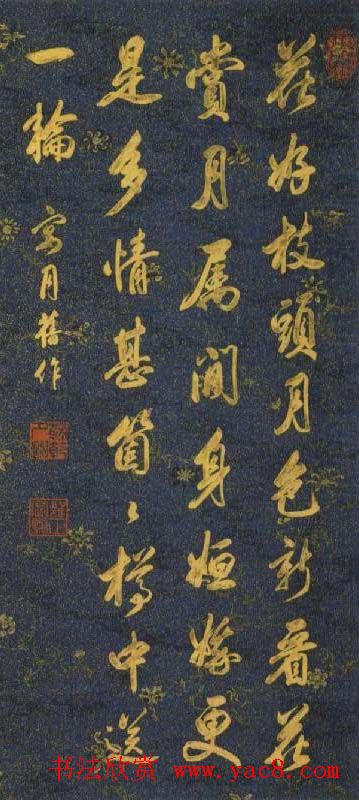 花好枝頭月色新看花
賞月属閒身姮娥更
是多情甚箇〻樽中送
一輪
月 作
书法欣赏 www.yac8.com